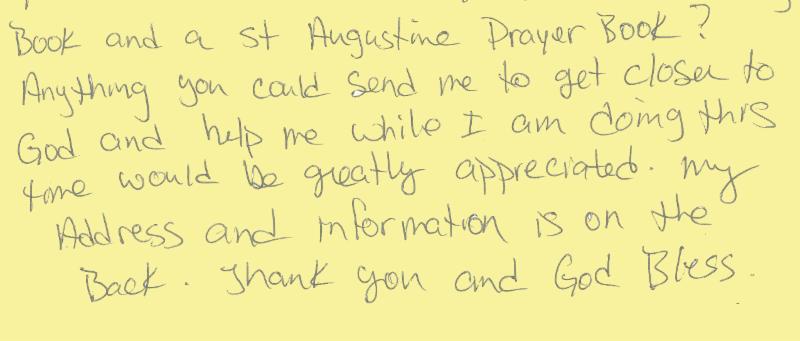 Book and a St Augustine Prayer Book?
Anything you could send me to get closer to
God and help me while I am doing this
time would be greatly appreciated. My
Address and information is on the
Back. Thank you and God Bless.